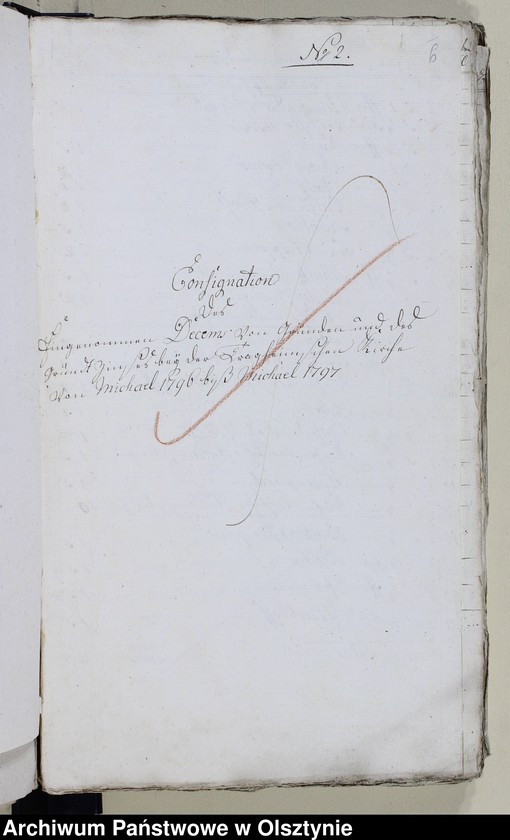 No 2.
6
Consignation
Des
Eingenommen Decems von Gründen und des
Grundt Zinses bey der Tragheimschen Kirche
Von Michael 1796 byß Michael 1797
Archiwum Państwowe w Olsztynie